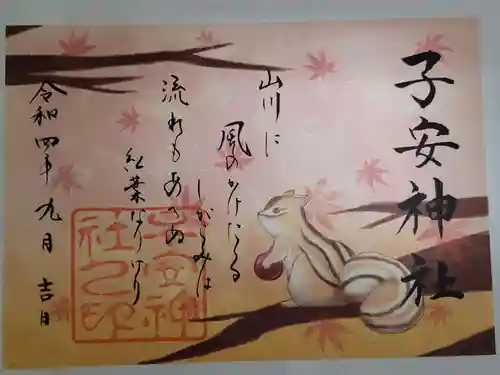 子安神社
山川に
風のかけたる
しがらみは
流れもあへぬ
紅葉なりけり
令和四年九月吉日
子安神
社之印